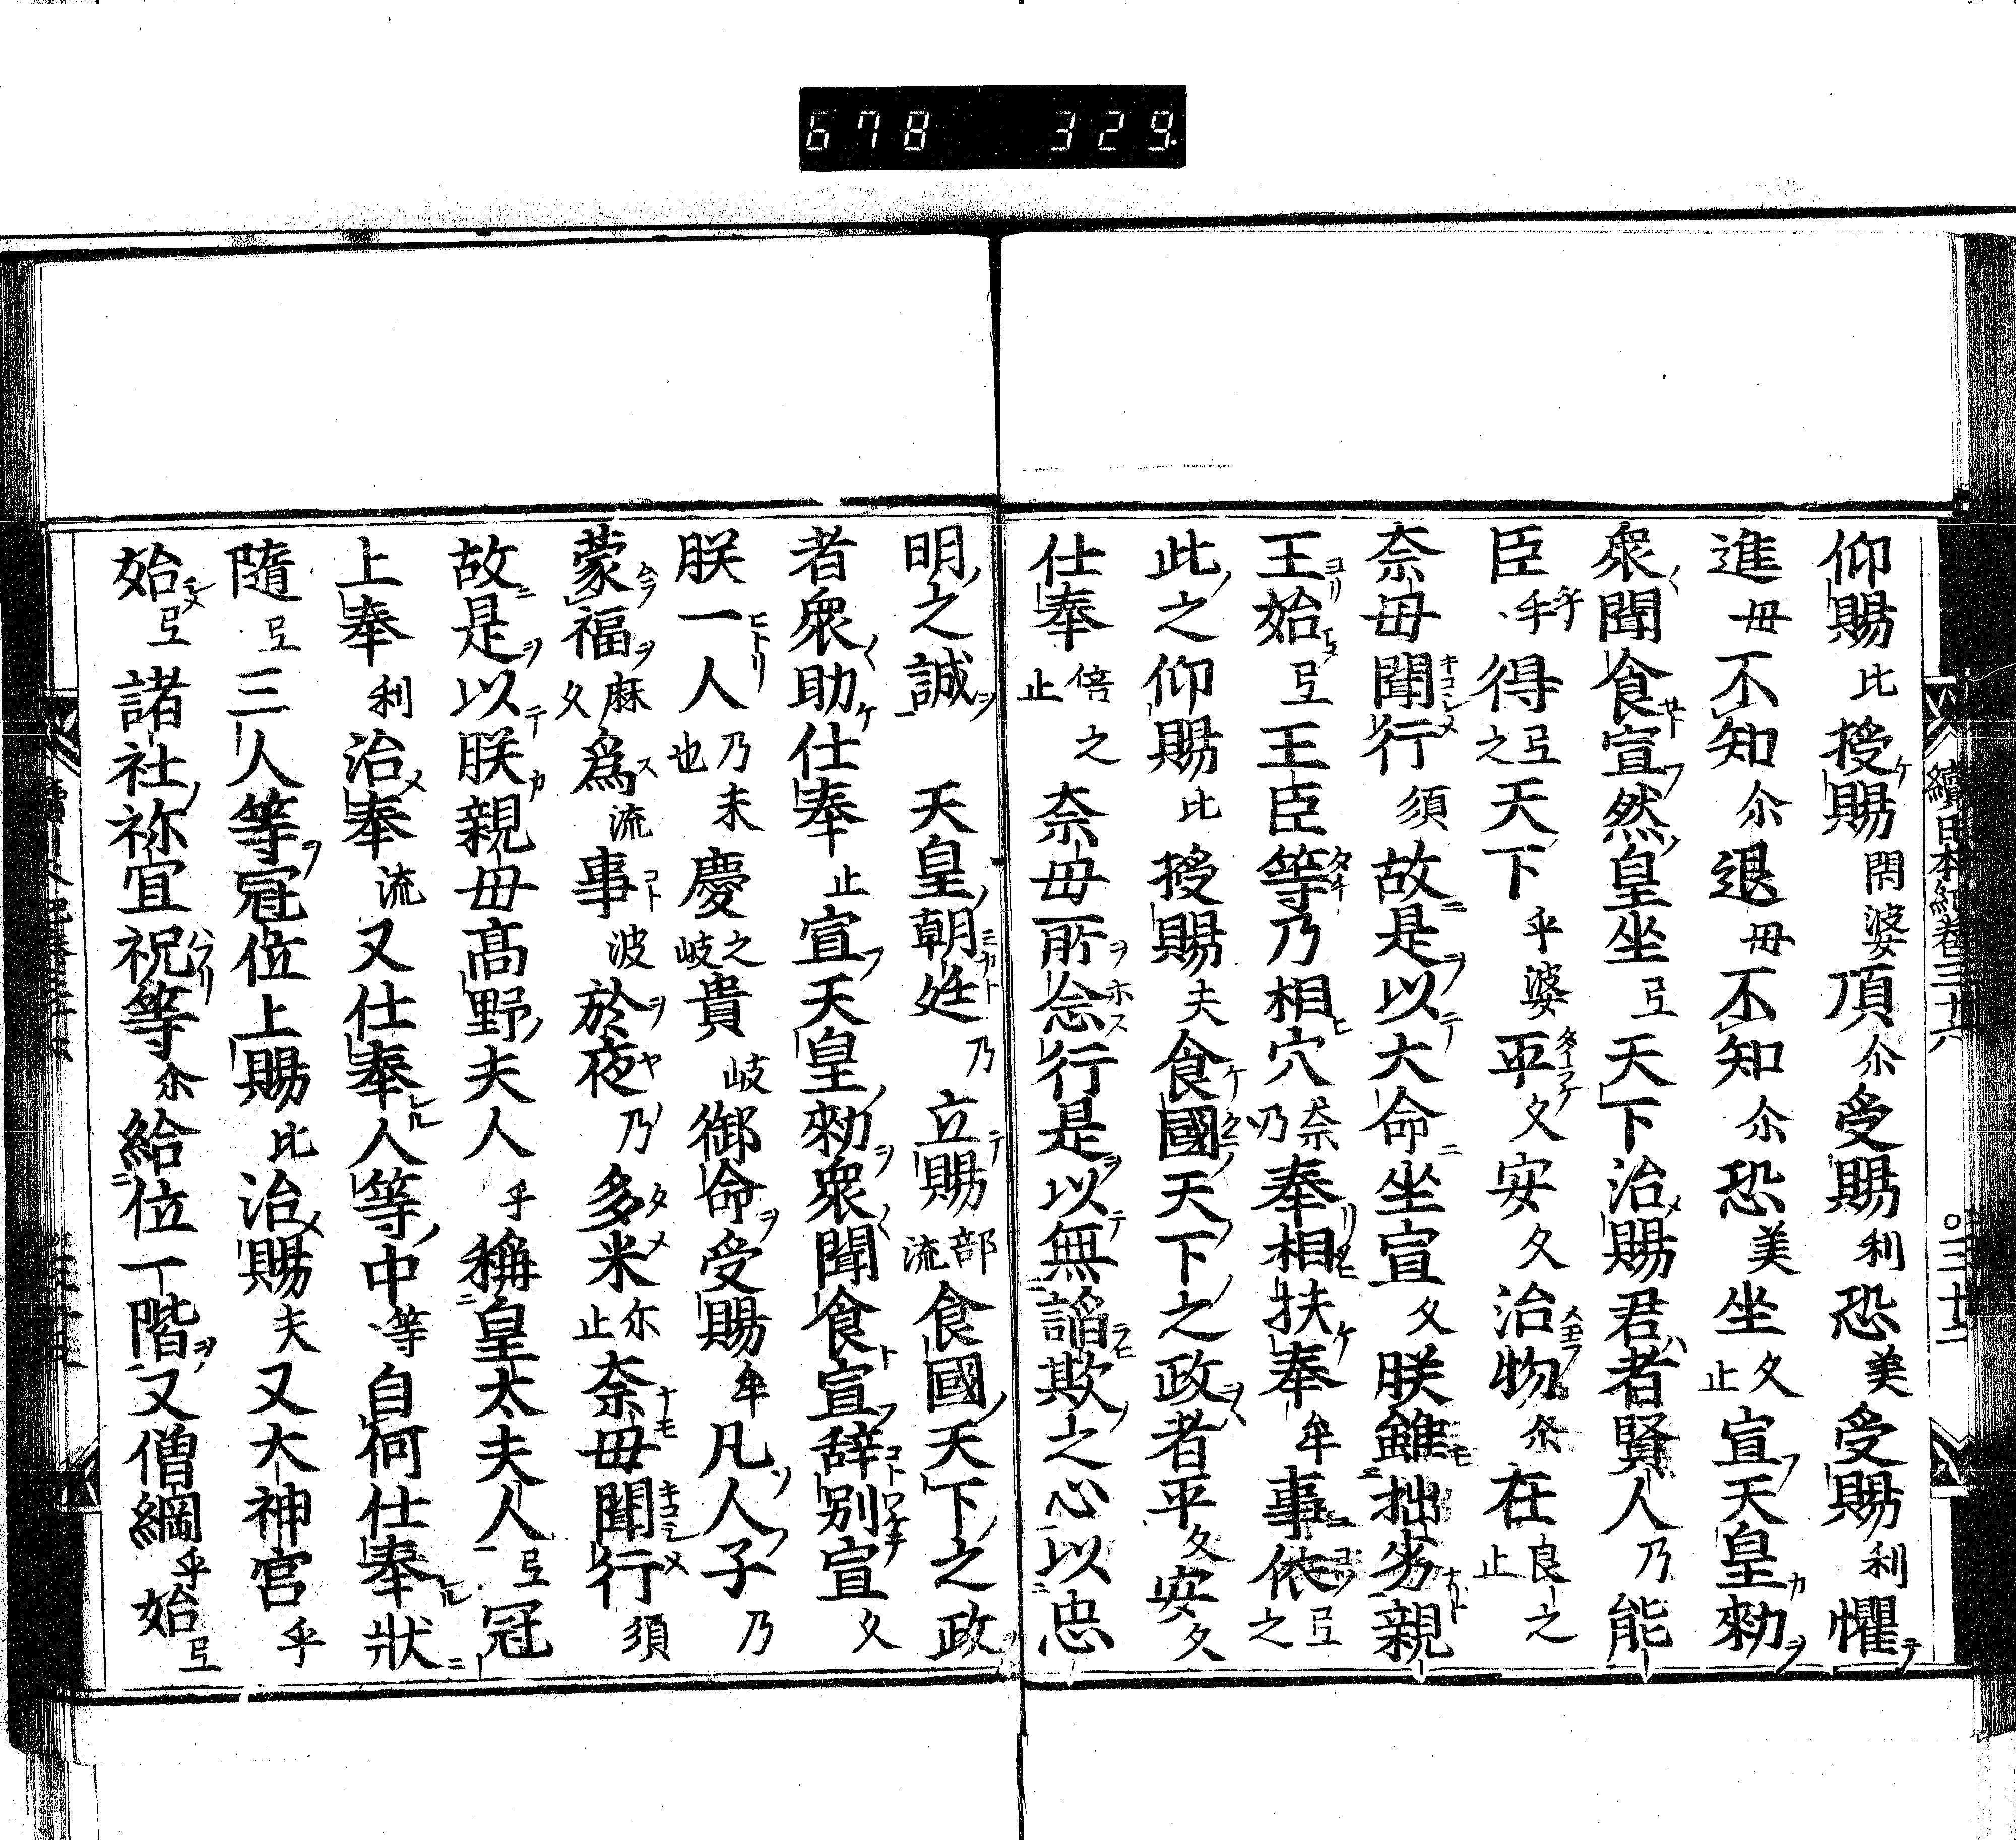 678 329
續日本紀卷三十六
仰賜比授賜閇婆頂尒受賜利恐美受賜利懼
進毋不知尒退毋不知尒恐美坐久止宣天皇勅
衆聞食宣然皇坐弖天下治賜君者賢人乃能
臣乎得弖之天下乎婆平久安久治物尒在良之止
奈毋聞行須故是以大命坐宣久朕雖拙劣親
王始弖王臣等乃相穴奈乃奉相扶奉牟事依弖之
此之仰賜比授賜夫食國天下之政者平久安久
仕奉倍之止奈毋所念行是以無謟欺之心以忠
明之誠天皇朝廷乃立賜部流食國天下之政
者衆助仕奉止宣天皇勅衆聞食宣辞別宣久
朕一人乃未也慶之岐貴岐御命受賜牟凡人子乃
蒙福麻久爲流事波於夜乃多米尔止奈毋聞行須
故是以朕親毋高野夫人乎稱皇太夫人弖冠
上奉利治奉流又仕奉人等中等自何仕奉狀
隨弖三人等冠位上賜比治賜夫又大神宮乎
始弖諸社祢宜祝等尒給位一階又僧綱乎始弖